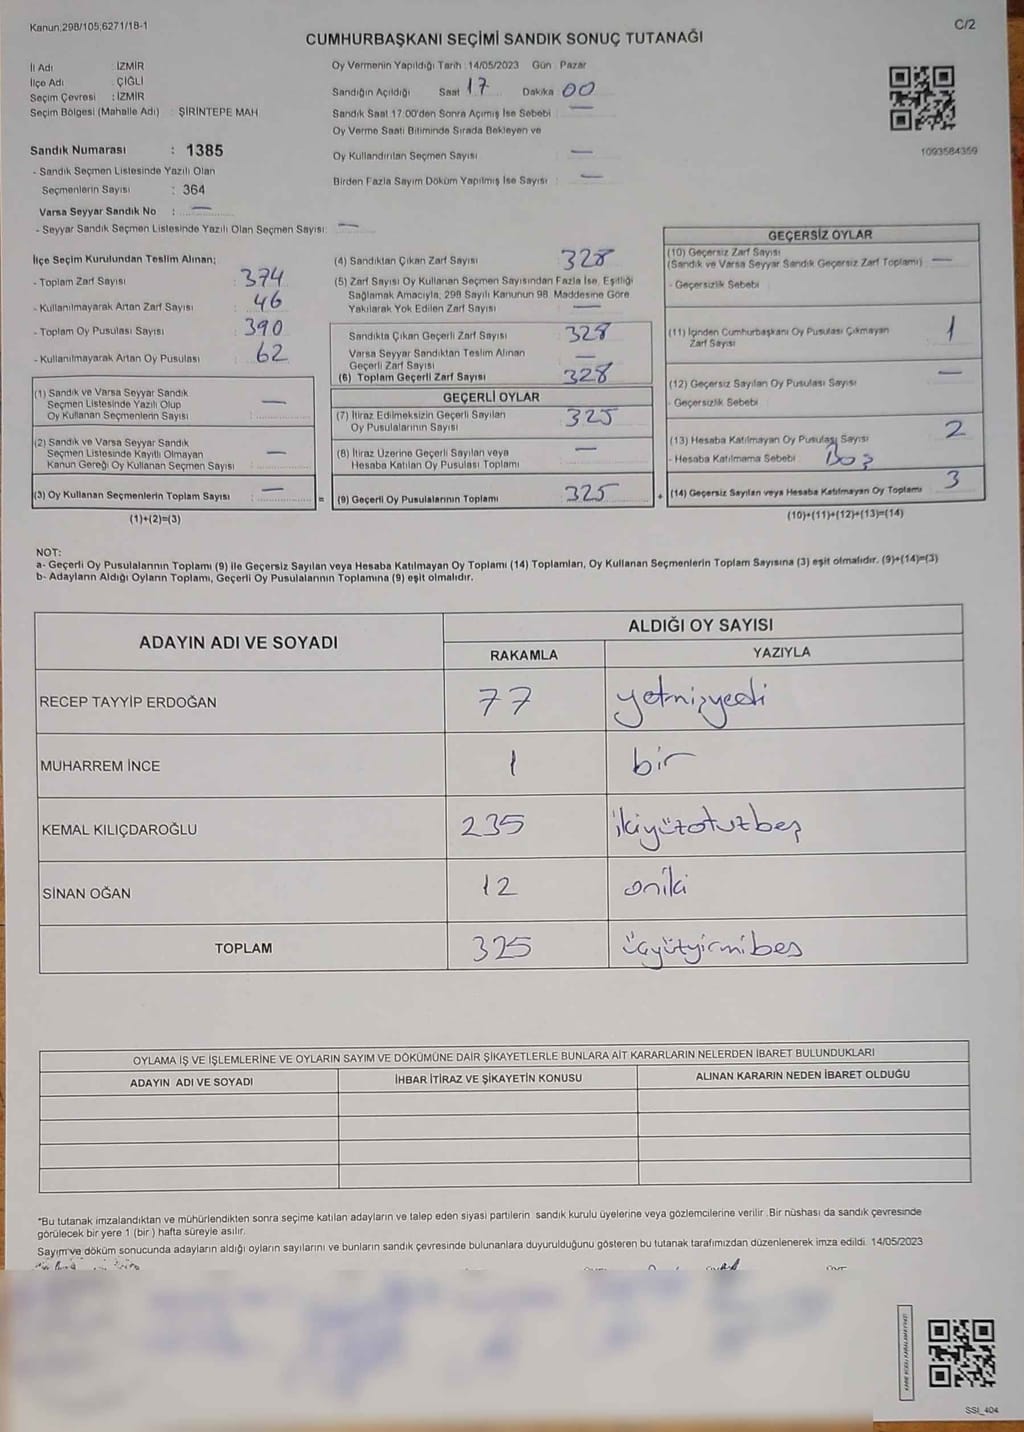 Kanun;298/105;6271/18-1
C/2
CUMHURBAŞKANI SEÇİMİ SANDIK SONUÇ TUTANAĞI
İl Adı : İZMİR
İlçe Adı : ÇİĞLİ
Seçim Çevresi : İZMİR
Seçim Bölgesi (Mahalle Adı) : ŞİRİNTEPE MAH
Sandık Numarası : 1385
- Sandık Seçmen Listesinde Yazılı Olan
Seçmenlerin Sayısı : 364
Varsa Seyyar Sandık No : —
- Seyyar Sandık Seçmen Listesinde Yazılı Olan Seçmen Sayısı: —
Oy Vermenin Yapıldığı Tarih : 14/05/2023 Gün : Pazar
Sandığın Açıldığı Saat 17 Dakika 00
Sandık Saat 17:00'den Sonra Açımış İse Sebebi —
Oy Verme Saati Bitiminde Sırada Bekleyen ve
Oy Kullandırılan Seçmen Sayısı —
Birden Fazla Sayım Döküm Yapılmış İse Sayısı : —
1093584359
İlçe Seçim Kurulundan Teslim Alınan;
- Toplam Zarf Sayısı : 374
- Kullanılmayarak Artan Zarf Sayısı : 46
- Toplam Oy Pusulası Sayısı : 390
- Kullanılmayarak Artan Oy Pusulası : 62
(1) Sandık ve Varsa Seyyar Sandık
Seçmen Listesinde Yazılı Olup
Oy Kullanan Seçmenlerin Sayısı : —
(2) Sandık ve Varsa Seyyar Sandık
Seçmen Listesinde Kayıtlı Olmayan
Kanun Gereği Oy Kullanan Seçmen Sayısı : —
(3) Oy Kullanan Seçmenlerin Toplam Sayısı : —
(1)+(2)=(3)
=
(4) Sandıktan Çıkan Zarf Sayısı : 328
(5) Zarf Sayısı Oy Kullanan Seçmen Sayısından Fazla İse, Eşitliği
Sağlamak Amacıyla, 298 Sayılı Kanunun 98. Maddesine Göre
Yakılarak Yok Edilen Zarf Sayısı : —
Sandıkta Çıkan Geçerli Zarf Sayısı : 328
Varsa Seyyar Sandıktan Teslim Alınan
Geçerli Zarf Sayısı —
(6) Toplam Geçerli Zarf Sayısı : 328
GEÇERLİ OYLAR
(7) İtiraz Edilmeksizin Geçerli Sayılan
Oy Pusulalarının Sayısı : 325
(8) İtiraz Üzerine Geçerli Sayılan veya
Hesaba Katılan Oy Pusulası Toplamı : —
(9) Geçerli Oy Pusulalarının Toplamı : 325
+
GEÇERSİZ OYLAR
(10) Geçersiz Zarf Sayısı
(Sandık ve Varsa Seyyar Sandık Geçersiz Zarf Toplamı) —
- Geçersizlik Sebebi
(11) İçinden Cumhurbaşkanı Oy Pusulası Çıkmayan
Zarf Sayısı 1
(12) Geçersiz Sayılan Oy Pusulası Sayısı —
- Geçersizlik Sebebi
(13) Hesaba Katılmayan Oy Pusulası Sayısı 2
- Hesaba Katılmama Sebebi : Boş
(14) Geçersiz Sayılan veya Hesaba Katılmayan Oy Toplamı 3
(10)+(11)+(12)+(13)=(14)
NOT:
a- Geçerli Oy Pusulalarının Toplamı (9) ile Geçersiz Sayılan veya Hesaba Katılmayan Oy Toplamı (14) Toplamları, Oy Kullanan Seçmenlerin Toplam Sayısına (3) eşit olmalıdır. (9)+(14)=(3)
b- Adayların Aldığı Oyların Toplamı, Geçerli Oy Pusulalarının Toplamına (9) eşit olmalıdır.
ADAYIN ADI VE SOYADI
ALDIĞI OY SAYISI
RAKAMLA YAZIYLA
RECEP TAYYİP ERDOĞAN 77 yetmişyedi
MUHARREM İNCE 1 bir
KEMAL KILIÇDAROĞLU 235 ikiyüzotuzbeş
SİNAN OĞAN 12 oniki
TOPLAM 325 üçyütyirmibes
OYLAMA İŞ VE İŞLEMLERİNE VE OYLARIN SAYIM VE DÖKÜMÜNE DAİR ŞİKAYETLERLE BUNLARA AİT KARARLARIN NELERDEN İBARET BULUNDUKLARI
ADAYIN ADI VE SOYADI İHBAR İTİRAZ VE ŞİKAYETİN KONUSU ALINAN KARARIN NEDEN İBARET OLDUĞU
*Bu tutanak imzalandıktan ve mühürlendikten sonra seçime katılan adayların ve talep eden siyasi partilerin sandık kurulu üyelerine veya gözlemcilerine verilir. Bir nüshası da sandık çevresinde
görülecek bir yere 1 (bir) hafta süreyle asılır.
Sayım ve döküm sonucunda adayların aldığı oyların sayılarını ve bunların sandık çevresinde bulunanlara duyurulduğunu gösteren bu tutanak tarafımızdan düzenlenerek imza edildi. 14/05/2023
SSI_404